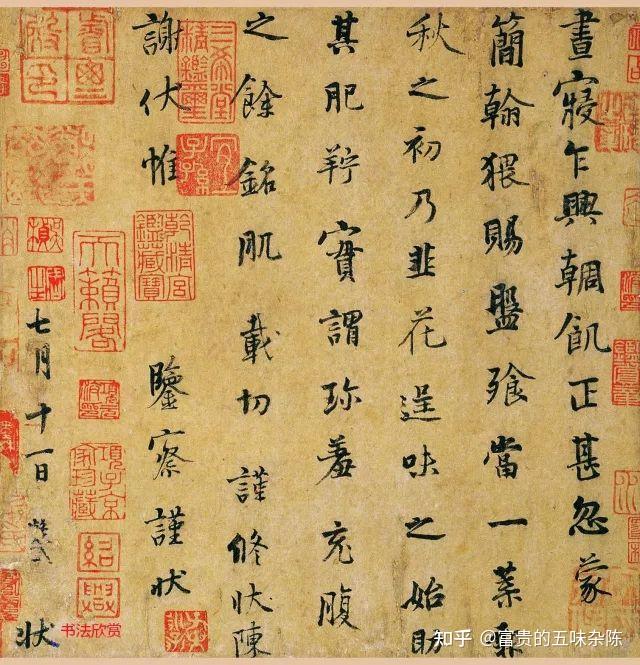 晝寢乍興輖飢正甚忽蒙
簡翰猥賜盤飧當一葉
秋之初乃韭花逞味之始助
其肥羜實謂珎羞充腹
之餘銘肌載切謹修狀陳
謝伏惟鑒察謹狀
七月十一日
狀
三希堂精鑑璽
宜子孫
乾清宮鑑藏寶
天籟閣
項子京家珍藏
紹興
书法欣赏
知乎 @富贵的五味杂陈